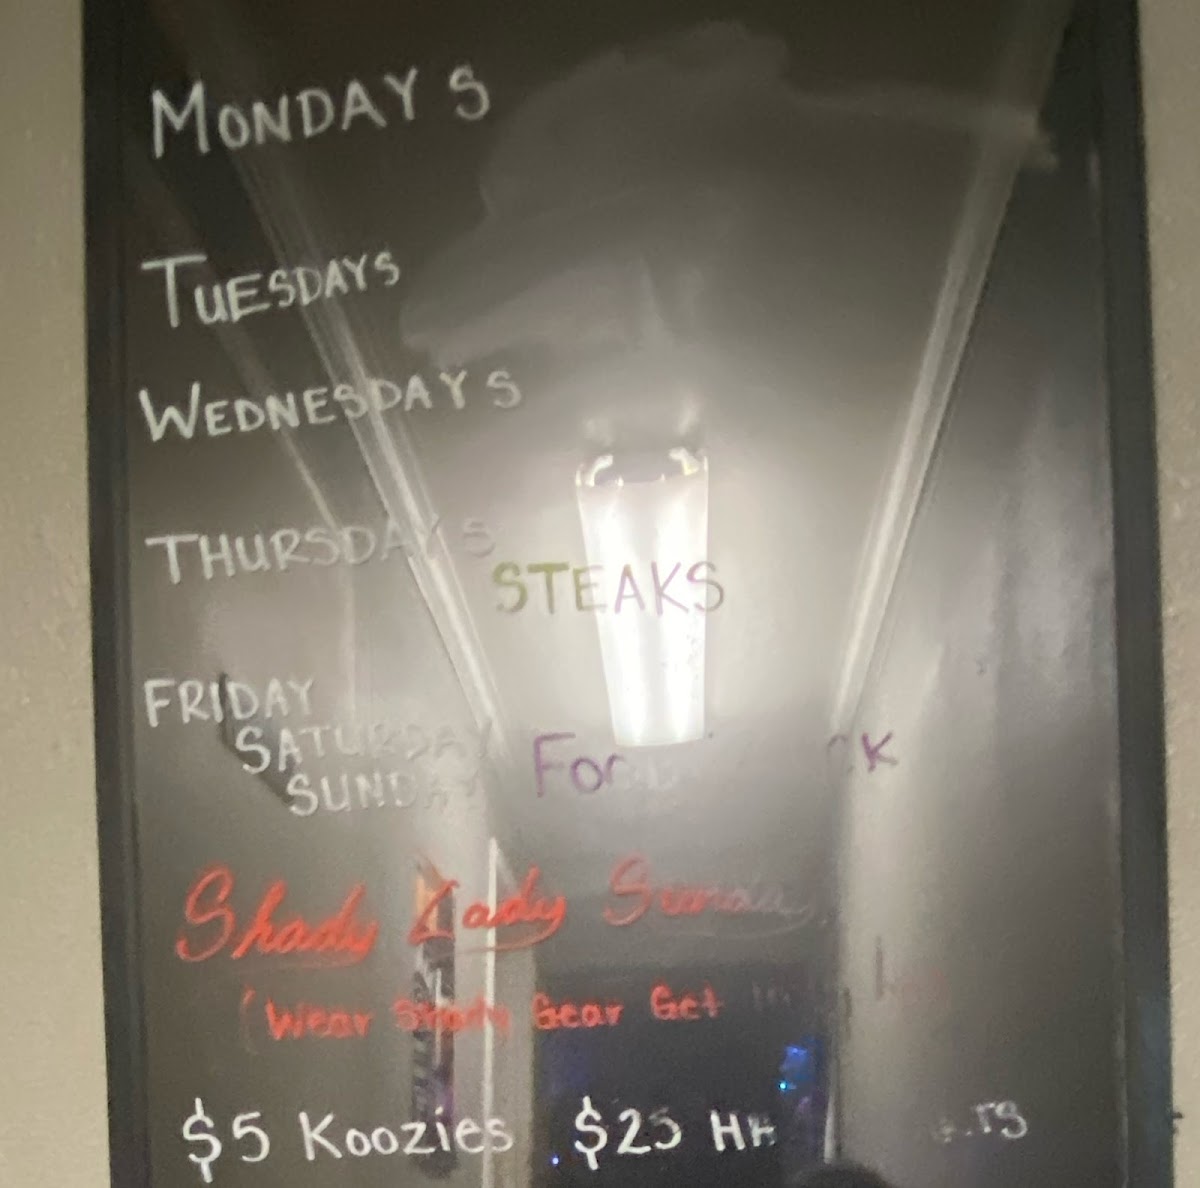 MONDAYS
TUESDAYS
WEDNESDAYS
THURSDAYS
STEAKS
FRIDAY
SATURDAY
SUNDAY
Shady Lady Sunday
(Wear Shady Gear Get
$5 Koozies $25